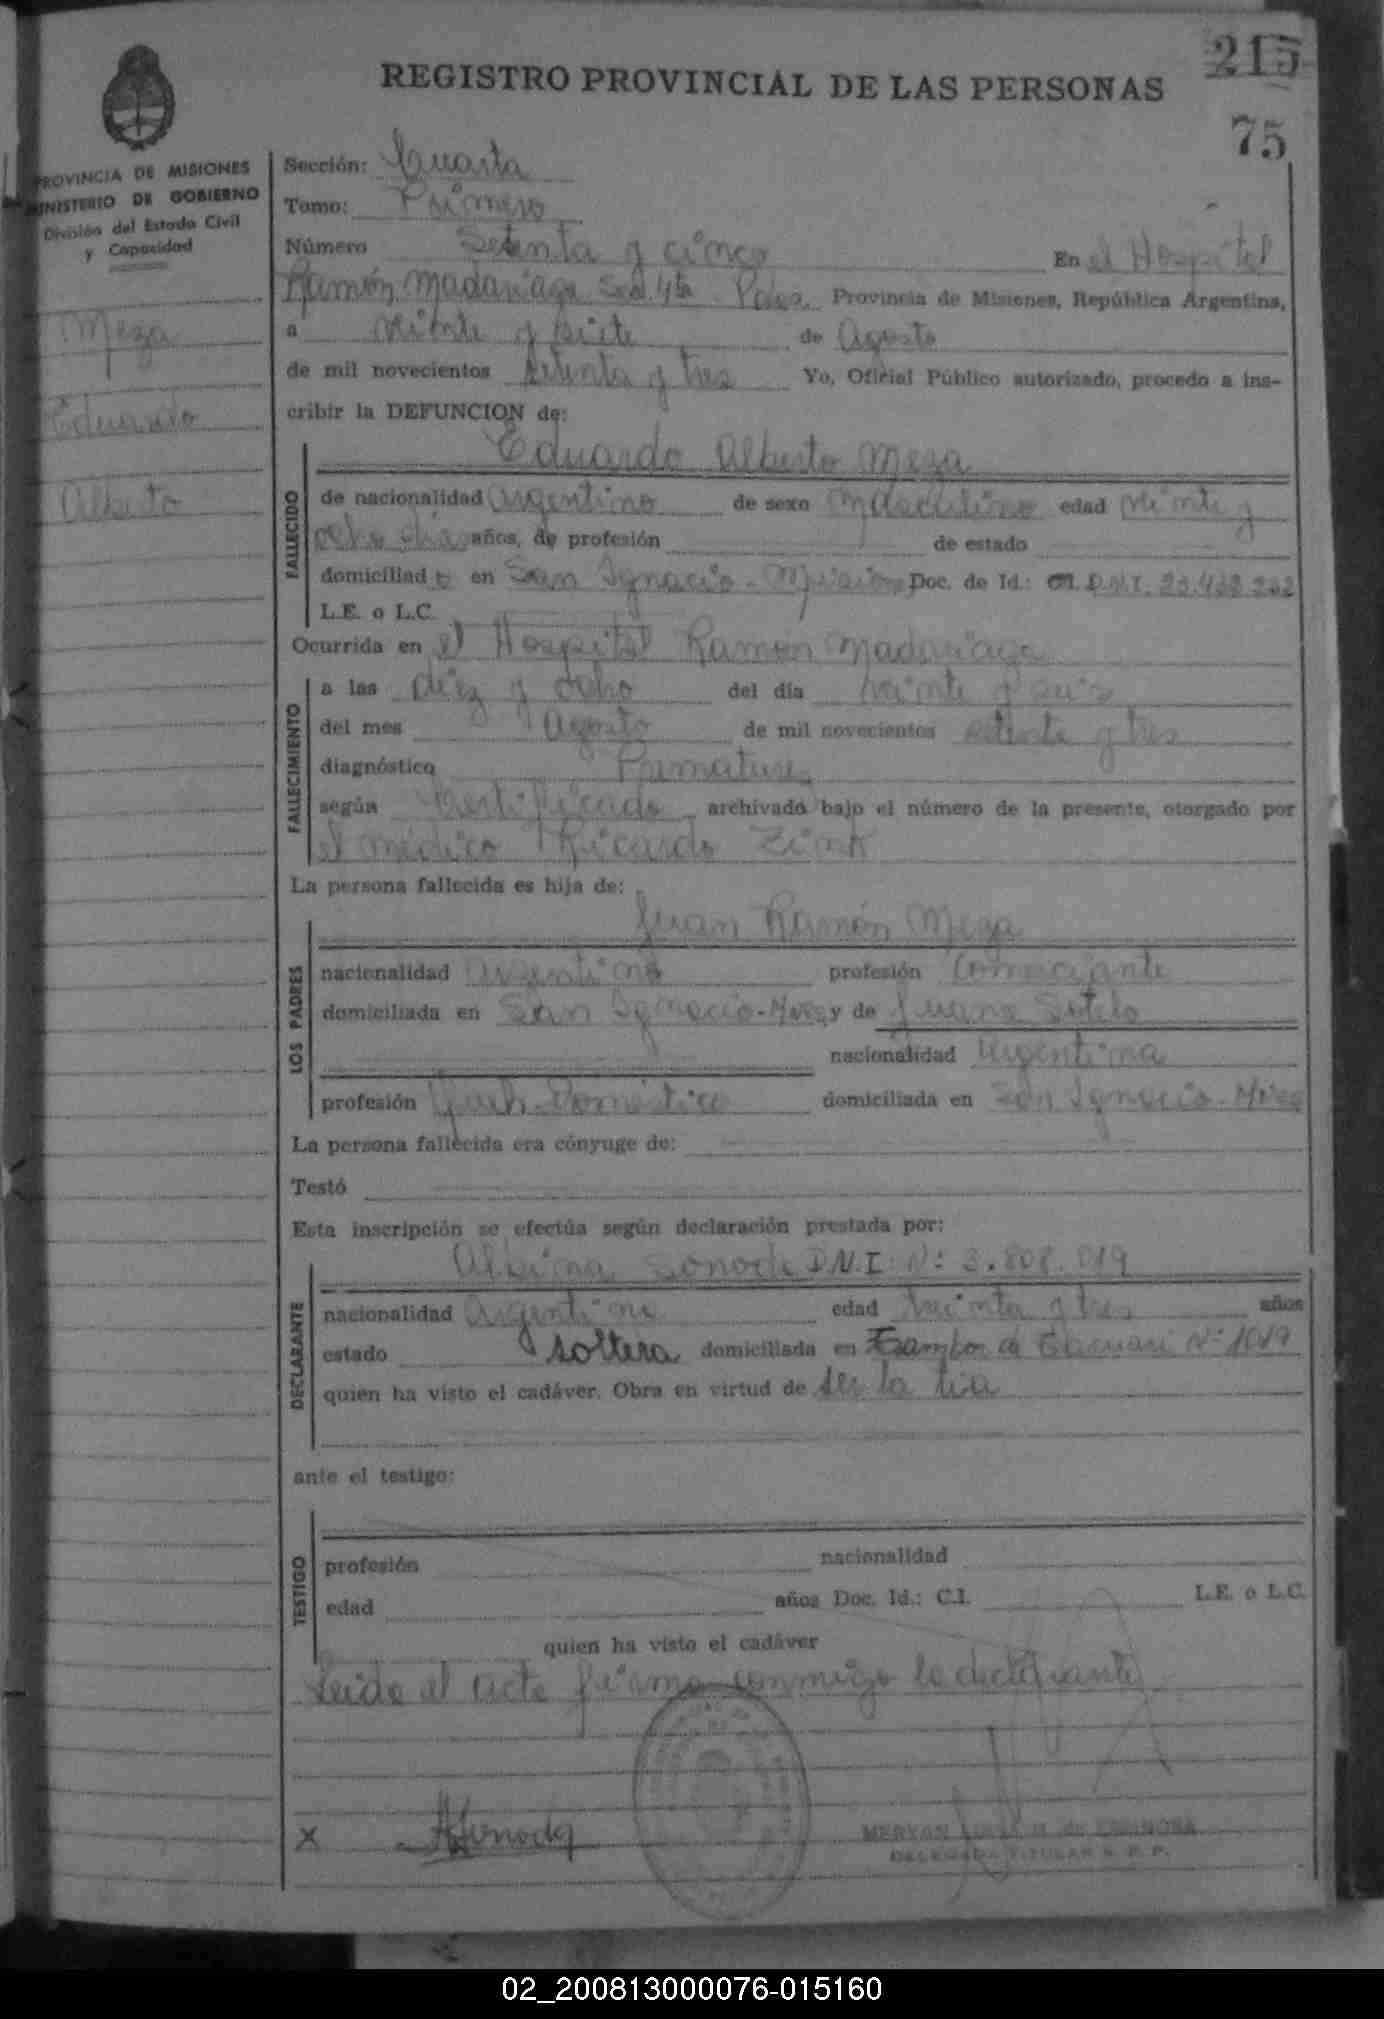 215
REGISTRO PROVINCIAL DE LAS PERSONAS
75
PROVINCIA DE MISIONES
MINISTERIO DE GOBIERNO
División del Estado Civil
y Capacidad
Meza
Eduardo
Alberto
Sección: Cuarta
Tomo: Primero
Número Setenta y cinco En el Hospital
Ramón Madariaga Sec. 4ta Pdas. Provincia de Misiones, República Argentina,
a veinte y siete de Agosto
de mil novecientos setenta y tres Yo, Oficial Público autorizado, procedo a ins-
cribir la DEFUNCION de:
Eduardo Alberto Meza
FALLECIDO
de nacionalidad argentino de sexo masculino edad veinte y
ocho días años, de profesión de estado
domiciliado en San Ignacio - Misiones Doc. de Id.: D.N.I. 23.438.232
L.E. o L.C.
Ocurrida en el Hospital Ramón Madariaga
FALLECIMIENTO
a las diez y ocho del día veinte y seis
del mes Agosto de mil novecientos setenta y tres
diagnóstico Prematurez
según certificado archivado bajo el número de la presente, otorgado por
el médico Ricardo Zink
La persona fallecida es hija de:
Juan Ramón Meza
LOS PADRES
nacionalidad argentino profesión Comerciante
domiciliada en San Ignacio - Mnes y de Juana Sotelo
nacionalidad Argentina
profesión Queh. Doméstico domiciliada en San Ignacio - Mnes
La persona fallecida era cónyuge de:
Testó
Esta inscripción se efectúa según declaración prestada por:
Albina Sonoda D.N.I. Nº 3.808.019
DECLARANTE
nacionalidad Argentina edad treinta y tres años
estado soltera domiciliada en Tambor de Tacuari Nº 1019
quien ha visto el cadáver. Obra en virtud de ser la tía
ante el testigo:
TESTIGO
profesión nacionalidad
edad años Doc. Id.: C.I. L.E. o L.C.
quien ha visto el cadáver
Leída el acta firma conmigo la declarante
X ASonoda
DELEGADA TITULAR R. P. P.
02_200813000076-015160